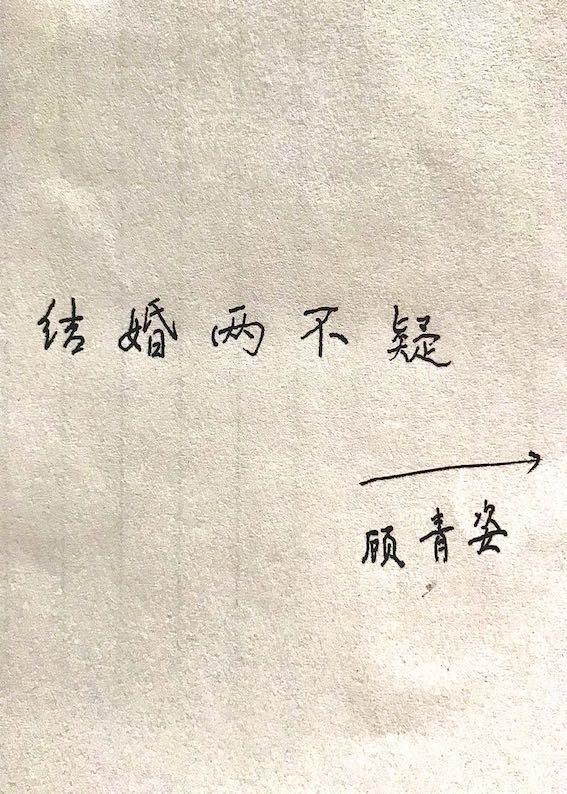 结婚两不疑
顾青姿